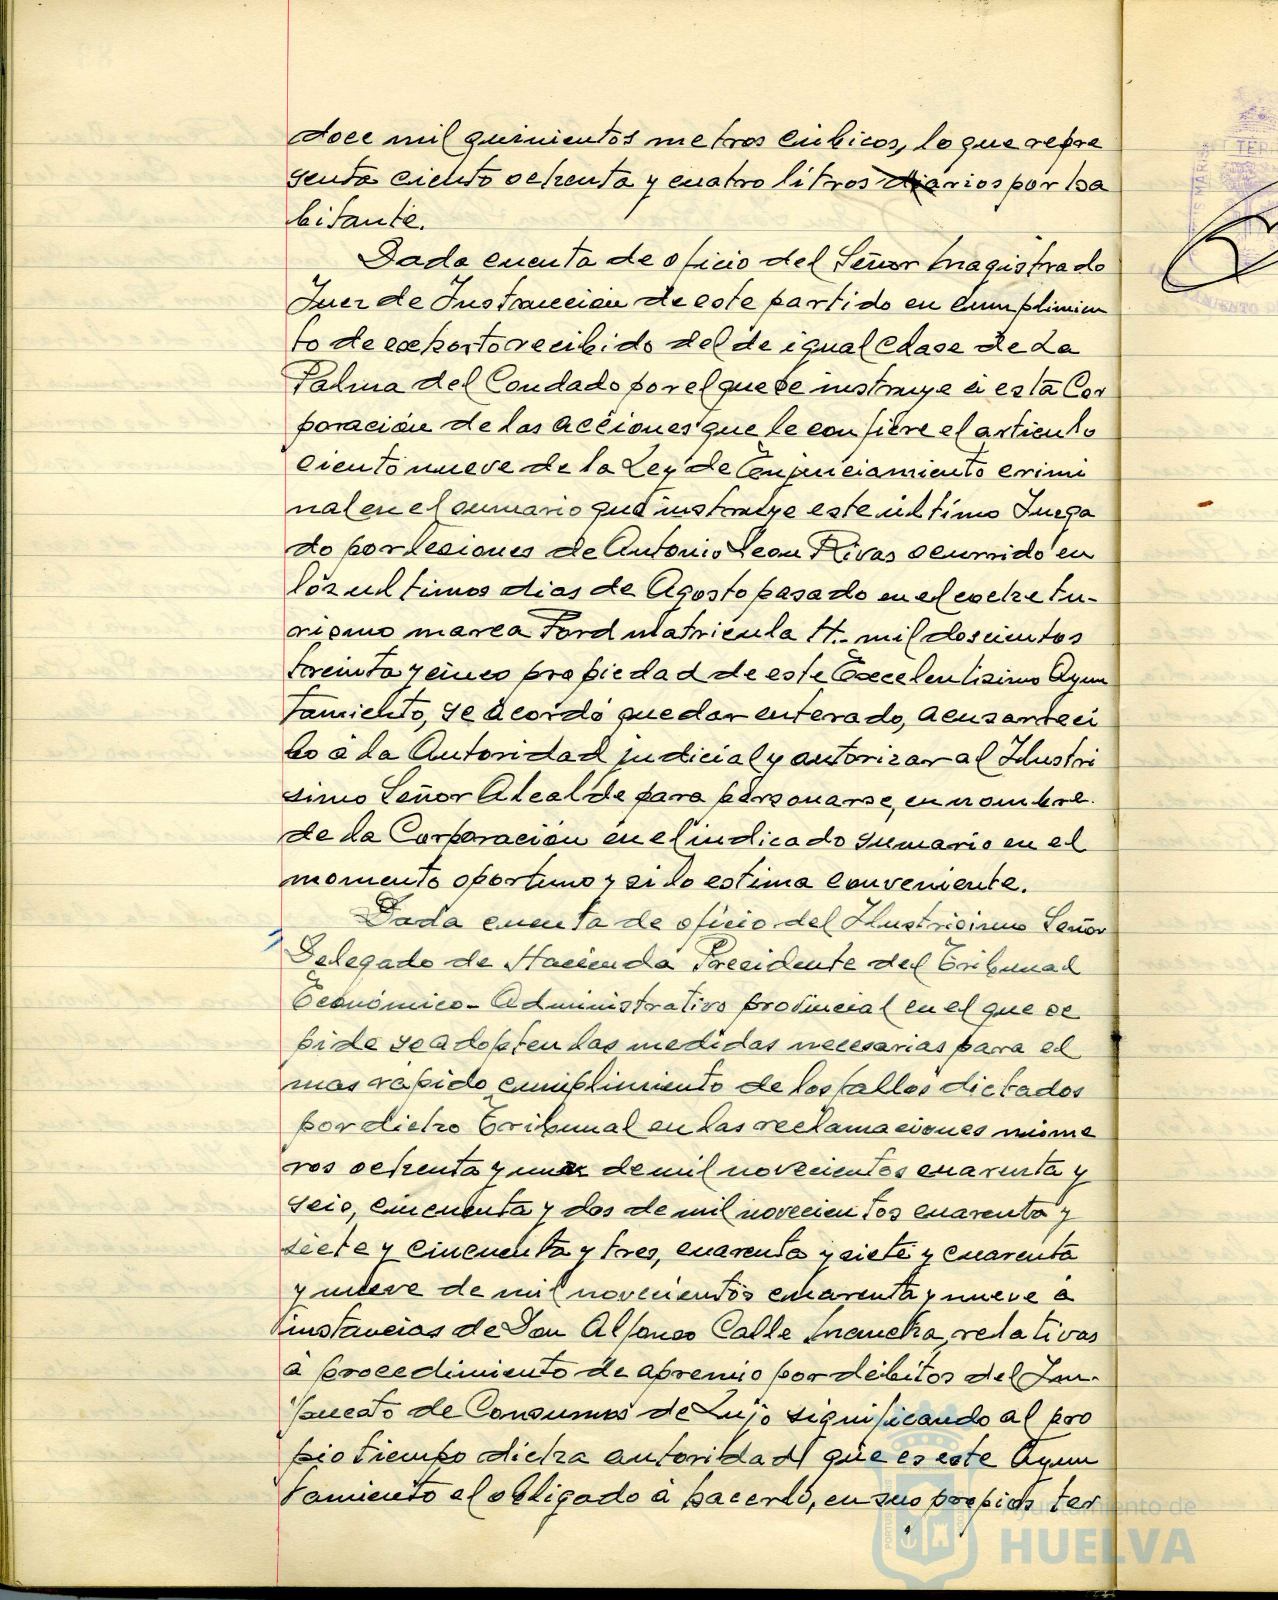 doce mil quinientos metros cúbicos, lo que repre
senta ciento ochenta y cuatro litros diarios por ha
bitante.
Dada cuenta de oficio del Señor Magistrado
Juez de Instrucción de este partido en cumplimien
to de exhorto recibido del de igual clase de La
Palma del Condado por el que se instruye á esta Cor
poración de las acciones que le confiere el artículo
ciento nueve de la Ley de Enjuiciamiento crimi
nal en el sumario que instruye este último Juzga
do por lesiones de Antonio Leon Rivas ocurrido en
los ultimos dias de Agosto pasado en el coche tu-
rismo marca Ford matricula H.- mil doscientos
treinta y cinco propiedad de este Excelentisimo Ayun
tamiento, se acordó quedar enterado, acusar reci
bo á la Autoridad judicial y autorizar al Ilustri
simo Señor Alcalde para personarse, en nombre
de la Corporación en el indicado sumario en el
momento oportuno y si lo estima conveniente.
Dada cuenta de oficio del Ilustrisimo Señor
Delegado de Hacienda Presidente del Tribunal
Económico-Administrativo provincial en el que se
pide se adopten las medidas necesarias para el
mas rápido cumplimiento de los fallos dictados
por dicho Tribunal en las reclamaciones núme
ros ochenta y una de mil novecientos cuarenta y
seis, cincuenta y dos de mil novecientos cuarenta y
siete y cincuenta y tres, cuarenta y siete y cuarenta
y nueve de mil novecientos cuarenta y nueve á
instancias de Don Alfonso Calle Mancha, relativas
á procedimiento de apremio por débitos del Im-
puesto de Consumos de Lujo significando al pro
pio tiempo dicha autoridad que es este Ayun
tamiento el obligado á hacerlo, en sus propios ter
Ayuntamiento de
HUELVA